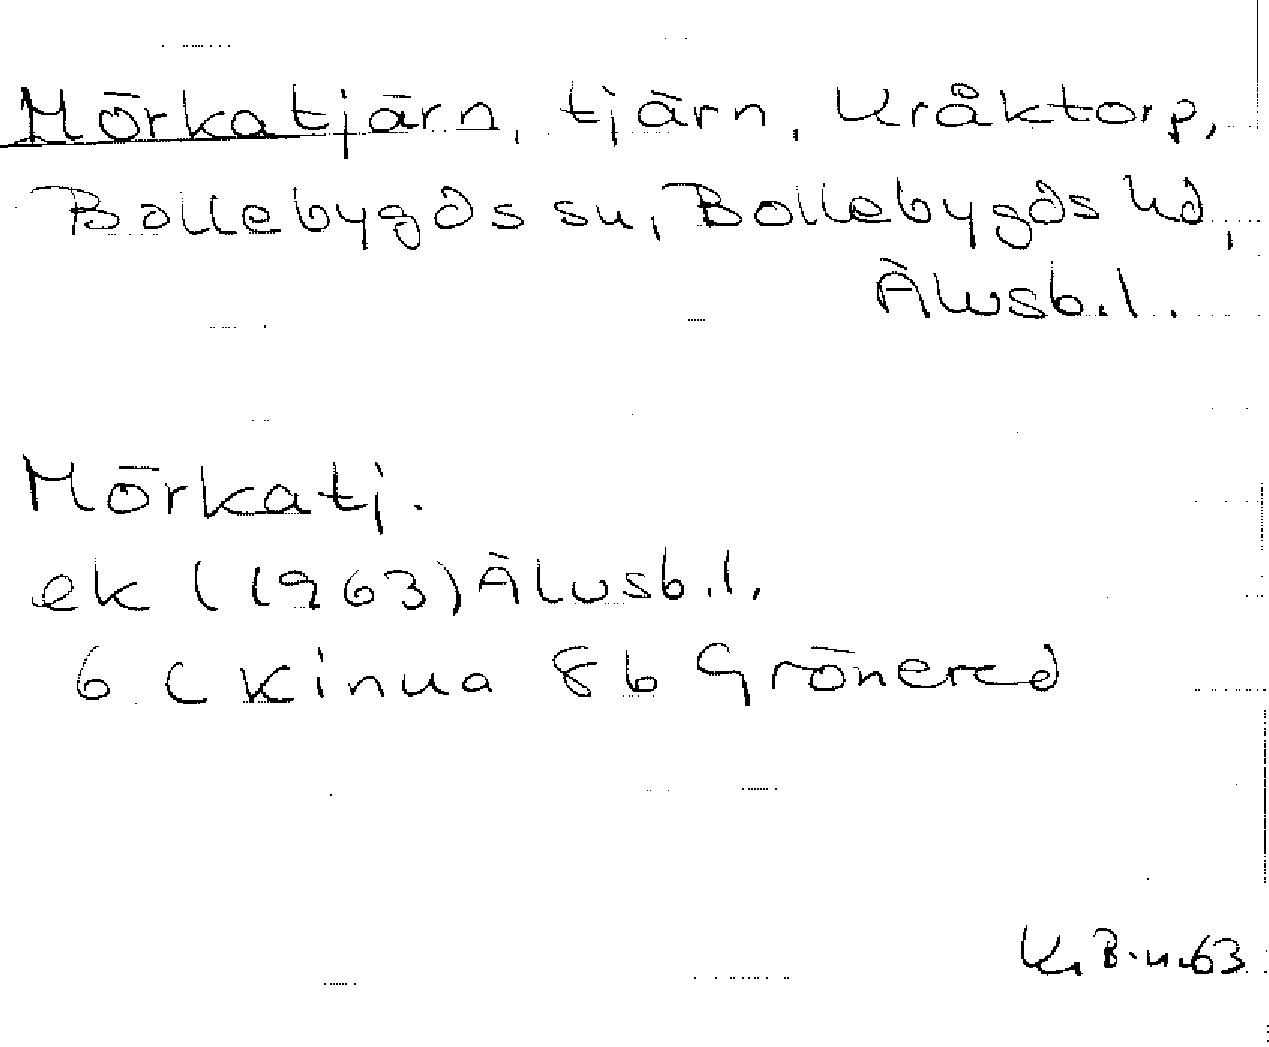 Mörkatjärn, tjärn, Kråktorp,
Bollebygds sn, Bollebygds hd,
Älvsb.l.
Mörkatj.
ek (1963) Älvsb.l.
6 C Kinna 8b Grönered